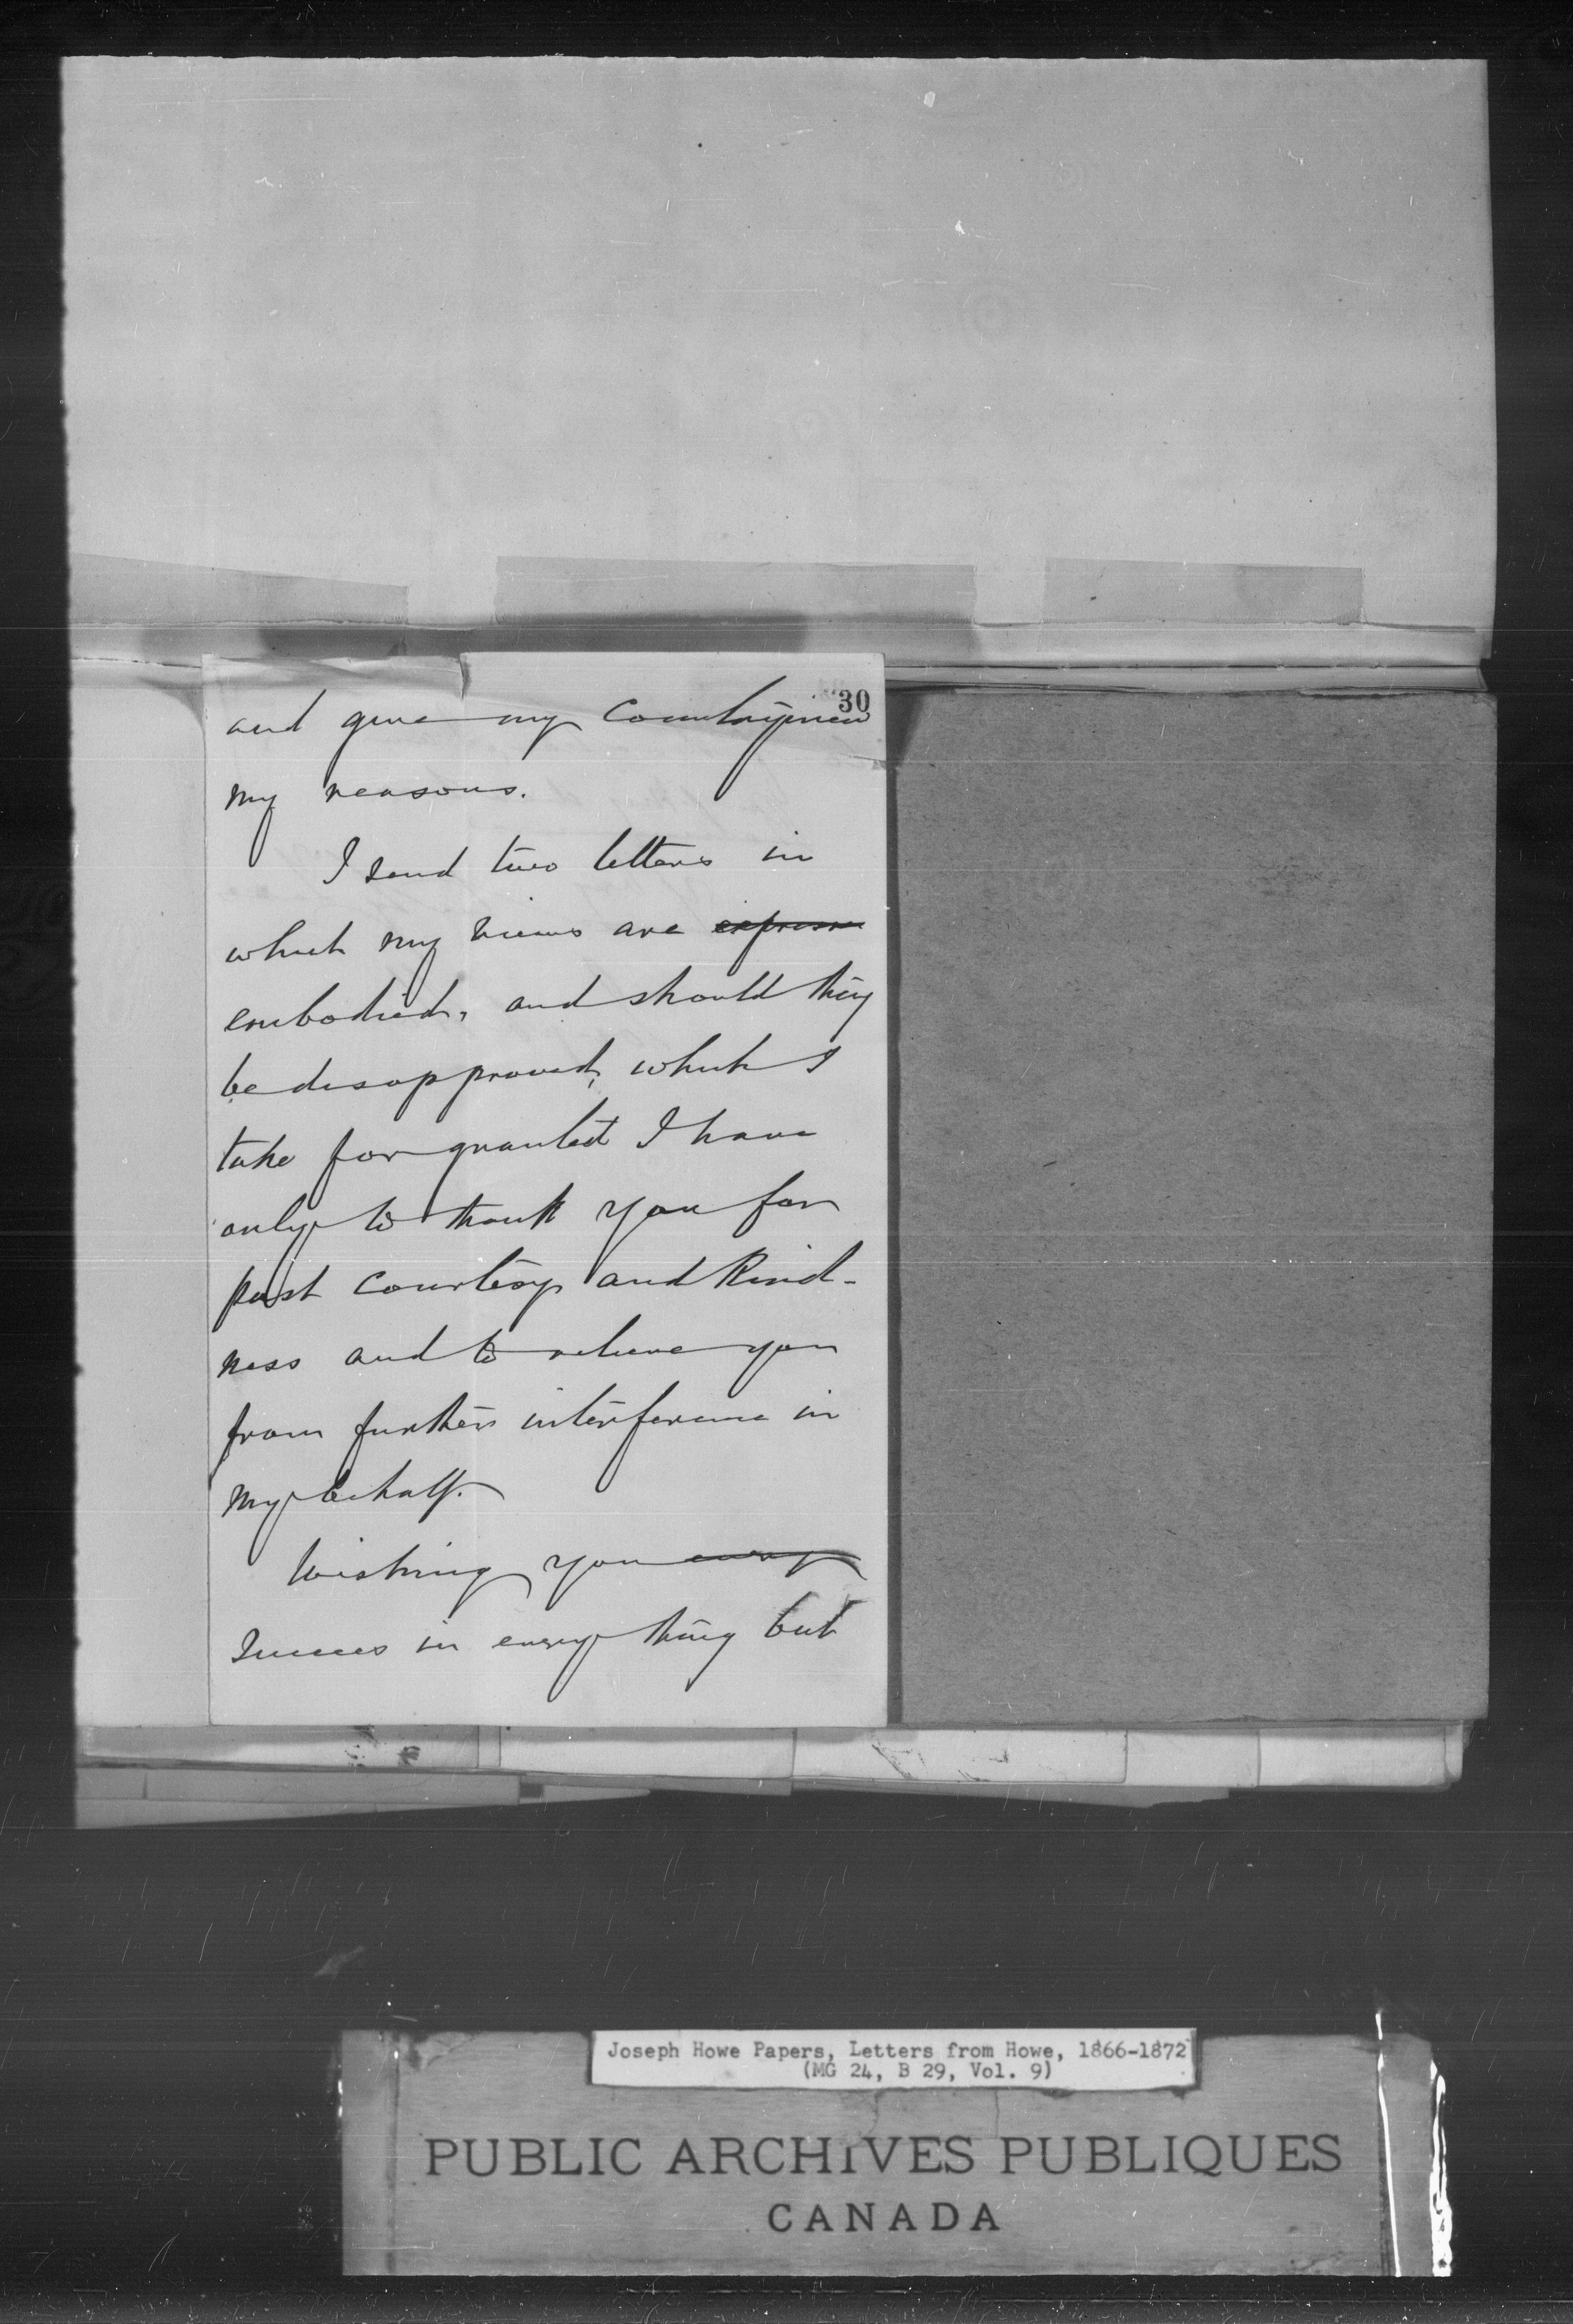 30
and give my Countrymen
my reasons.
I send two letters in
which my views are express
embodied, and should they
be disapproved, which I
take for granted I have
only to thank you for
past courtesy and Kind-
ness and to relieve you
from further interference in
my behalf.
Wishing you every
Success in every thing but
Joseph Howe Papers, Letters from Howe, 1866-1872
(MG 24, B 29, Vol. 9)
PUBLIC ARCHIVES PUBLIQUES
CANADA